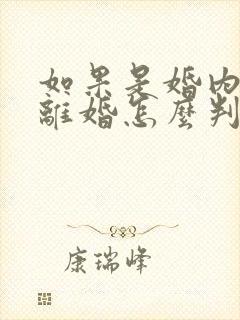 如果是婚内
離婚怎麼判
康瑞峰